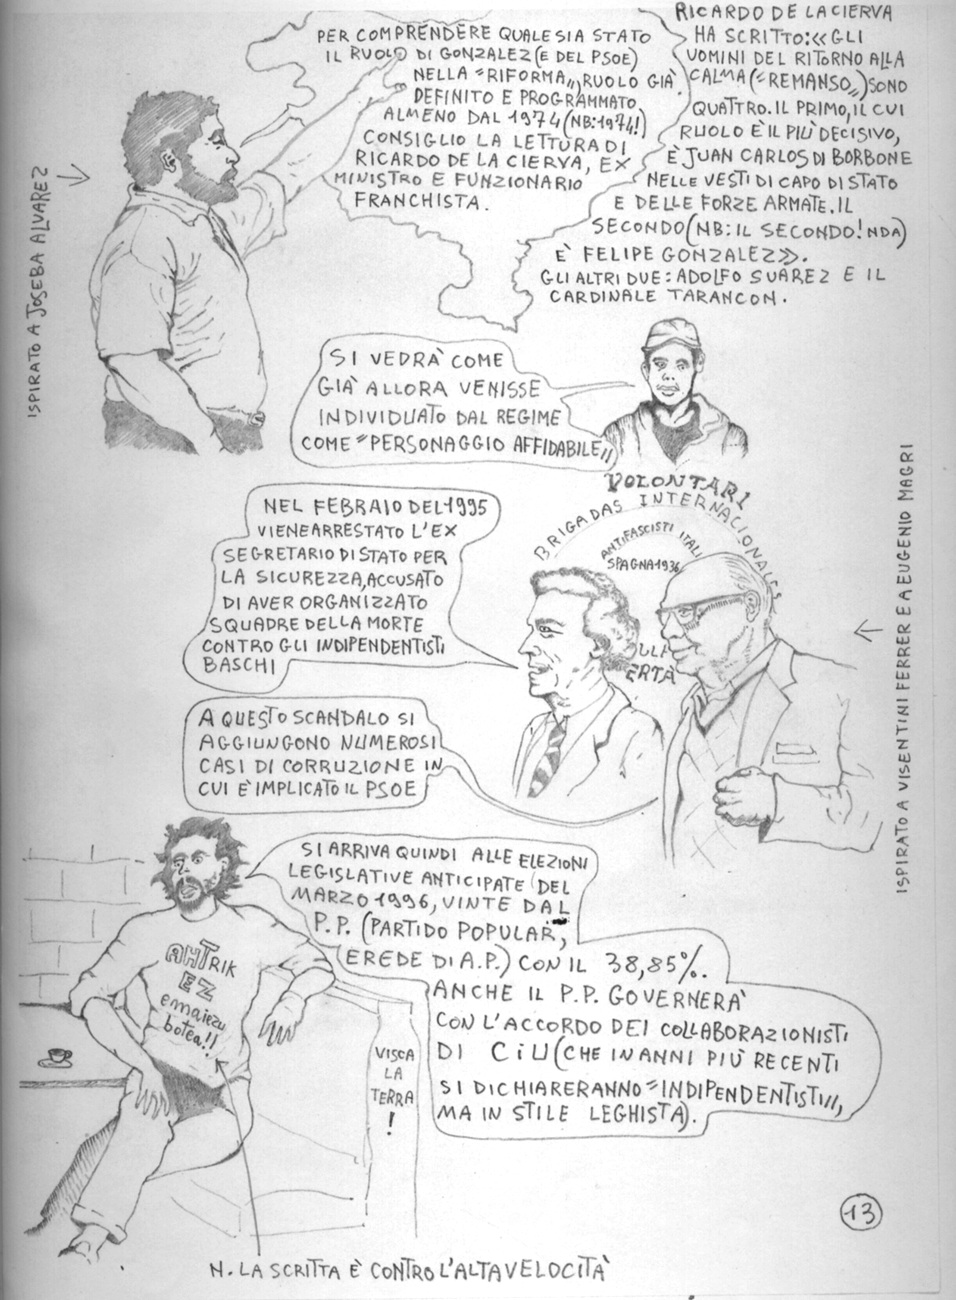 PER COMPRENDERE QUALE SIA STATO
IL RUOLO DI GONZALEZ (E DEL PSOE)
NELLA "RIFORMA", RUOLO GIÀ
DEFINITO E PROGRAMMATO
ALMENO DAL 1974 (NB: 1974!)
CONSIGLIO LA LETTURA DI
RICARDO DE LA CIERVA, EX
MINISTRO E FUNZIONARIO
FRANCHISTA.
RICARDO DE LA CIERVA
HA SCRITTO: «GLI
UOMINI DEL RITORNO ALLA
CALMA ("REMANSO") SONO
QUATTRO. IL PRIMO, IL CUI
RUOLO È IL PIÙ DECISIVO,
È JUAN CARLOS DI BORBONE
NELLE VESTI DI CAPO DI STATO
E DELLE FORZE ARMATE. IL
SECONDO (NB: IL SECONDO! NDA)
È FELIPE GONZALEZ».
GLI ALTRI DUE: ADOLFO SUAREZ E IL
CARDINALE TARANCON.
ISPIRATO A JOSEBA ALVAREZ
SI VEDRÀ COME
GIÀ ALLORA VENISSE
INDIVIDUATO DAL REGIME
COME "PERSONAGGIO AFFIDABILE"
VOLONTARI
BRIGADAS INTERNACIONALES
ANTIFASCISTI ITALI
SPAGNA 1936
ULLA
ERTÀ
NEL FEBRAIO DEL 1995
VIENE ARRESTATO L'EX
SEGRETARIO DI STATO PER
LA SICUREZZA, ACCUSATO
DI AVER ORGANIZZATO
SQUADRE DELLA MORTE
CONTRO GLI INDIPENDENTISTI
BASCHI
ISPIRATO A VISENTINI FERRER E A EUGENIO MAGRI
A QUESTO SCANDALO SI
AGGIUNGONO NUMEROSI
CASI DI CORRUZIONE IN
CUI È IMPLICATO IL PSOE
SI ARRIVA QUINDI ALLE ELEZIONI
LEGISLATIVE ANTICIPATE DEL
MARZO 1996, VINTE DAL
P.P. (PARTIDO POPULAR,
EREDE DI A.P.) CON IL 38,85%.
ANCHE IL P.P. GOVERNERÀ
CON L'ACCORDO DEI COLLABORAZIONISTI
DI CiU (CHE IN ANNI PIÙ RECENTI
SI DICHIARERANNO "INDIPENDENTISTI",
MA IN STILE LEGHISTA).
AHTRIK
EZ
emaiezu
botea!!
VISCA
LA
TERRA
!
13
N. LA SCRITTA È CONTRO L'ALTA VELOCITÀ